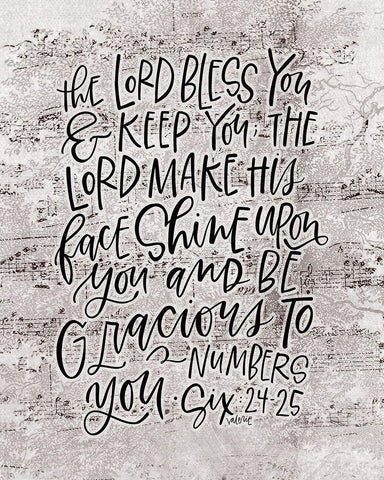 the LORD BLESS YOU
& KEEP YOU; THE
LORD MAKE HIS
face Shine upon
you AND BE
GRACIOUS TO
YOU · NUMBERS
Six: 24-25
valerie